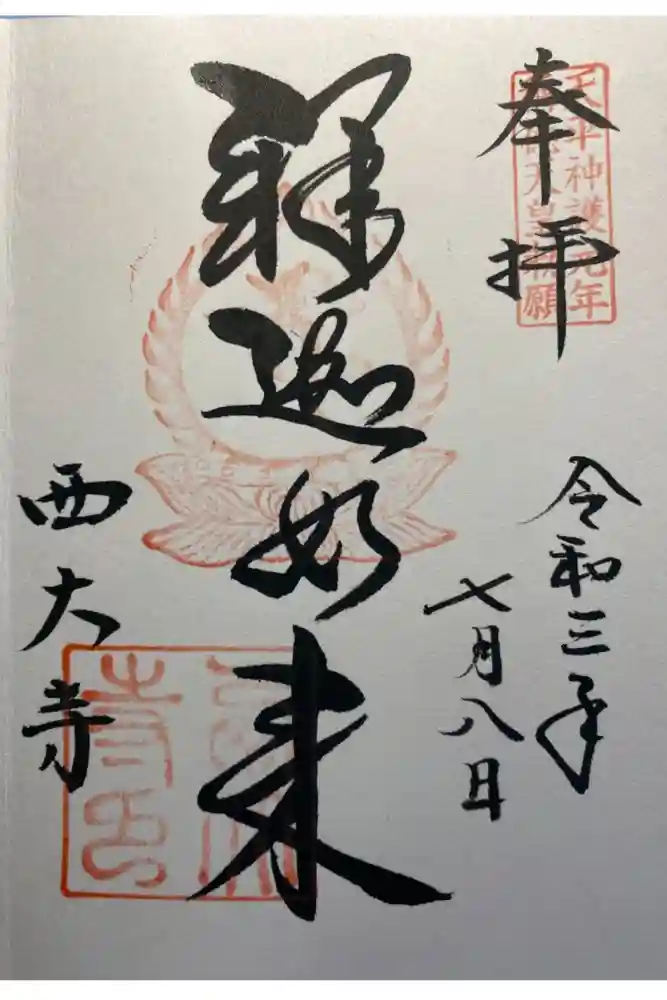 奉拝
天平神護元年
天皇勅願
令和三年
七月八日
釋迦如来
西大寺